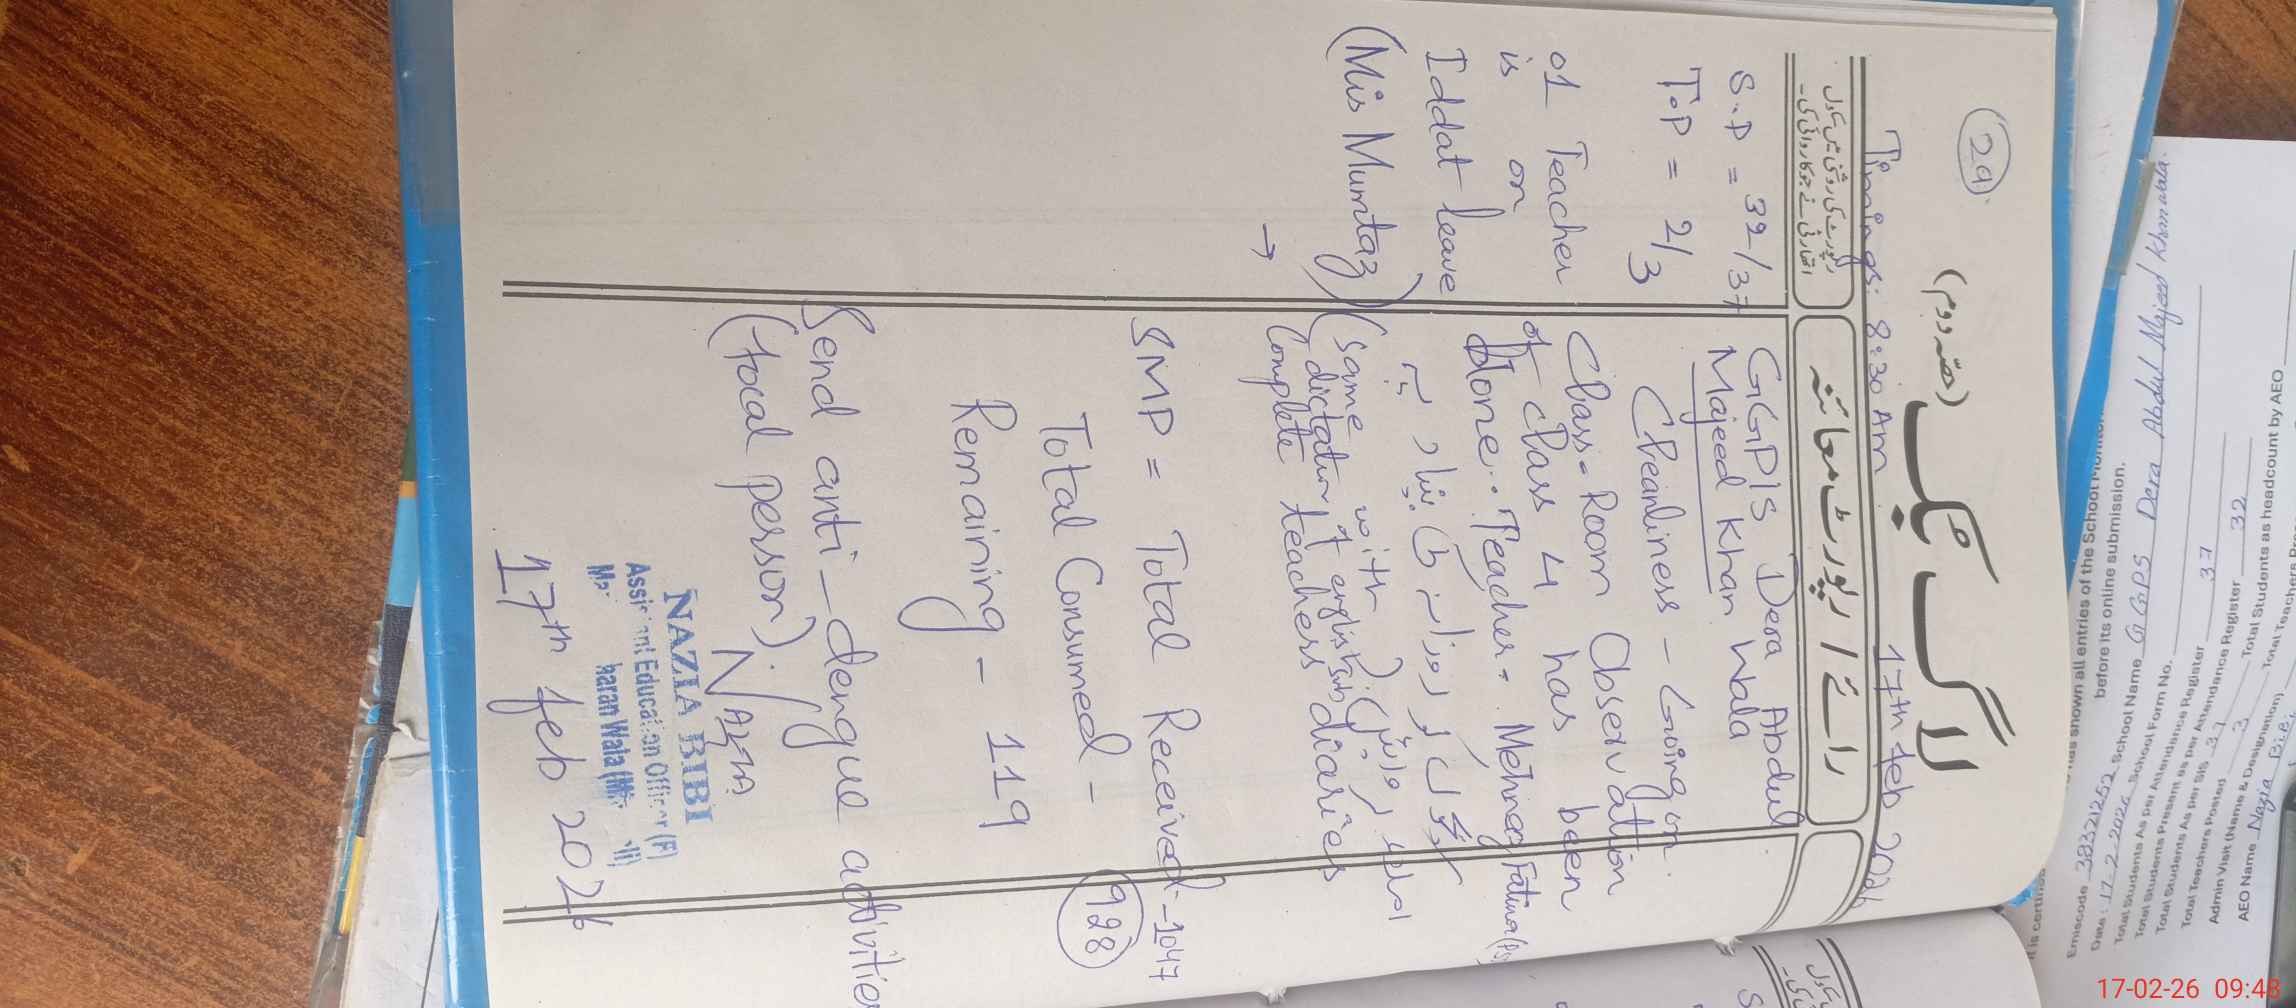 29
لاگ بک (حصہ دوم)
Timings: 8:30 Am 17th feb 2026
رپورٹ کی روشنی میں سکول
اتھارٹی نے جو کاروائی کی۔
رائے / رپورٹ معائنہ
S.P = 32/37
T.P = 2/3
01 Teacher
is on
Iddat leave
(Mis Mumtaz)
→
GGP/S Dera Abdul
Majeed Khan Wala
Cleanliness - Going on.
Class-Room Observation
of class 4 has been
done. Teacher = Mehnaz Fatima
(same with
dictation of english sub)
Complete teachers diaries
SMP = Total Received - 1047
Total Consumed - 928
Remaining - 119
Send anti-dengue activities
(focal person).
Nazia
NAZIA BIBI
Assistant Education Officer (F)
haran Wala
17th feb 2026
has shown all entries of the School
before its online submission.
Emiscode 38321252 School Name GGPS Dera Abdul Majeed Khanwala.
Date: 17-2-2026 School Form No.
Total Students As per Attendance Register 37
Total Students Present as per Attendance Register 32
Total Students As per SIS 37 Total Students as headcount by AEO
Total Teachers Posted 3 Total Teachers
Admin Visit (Name & Designation)
AEO Name Nazia Bibi
It is certified
17-02-26 09:48